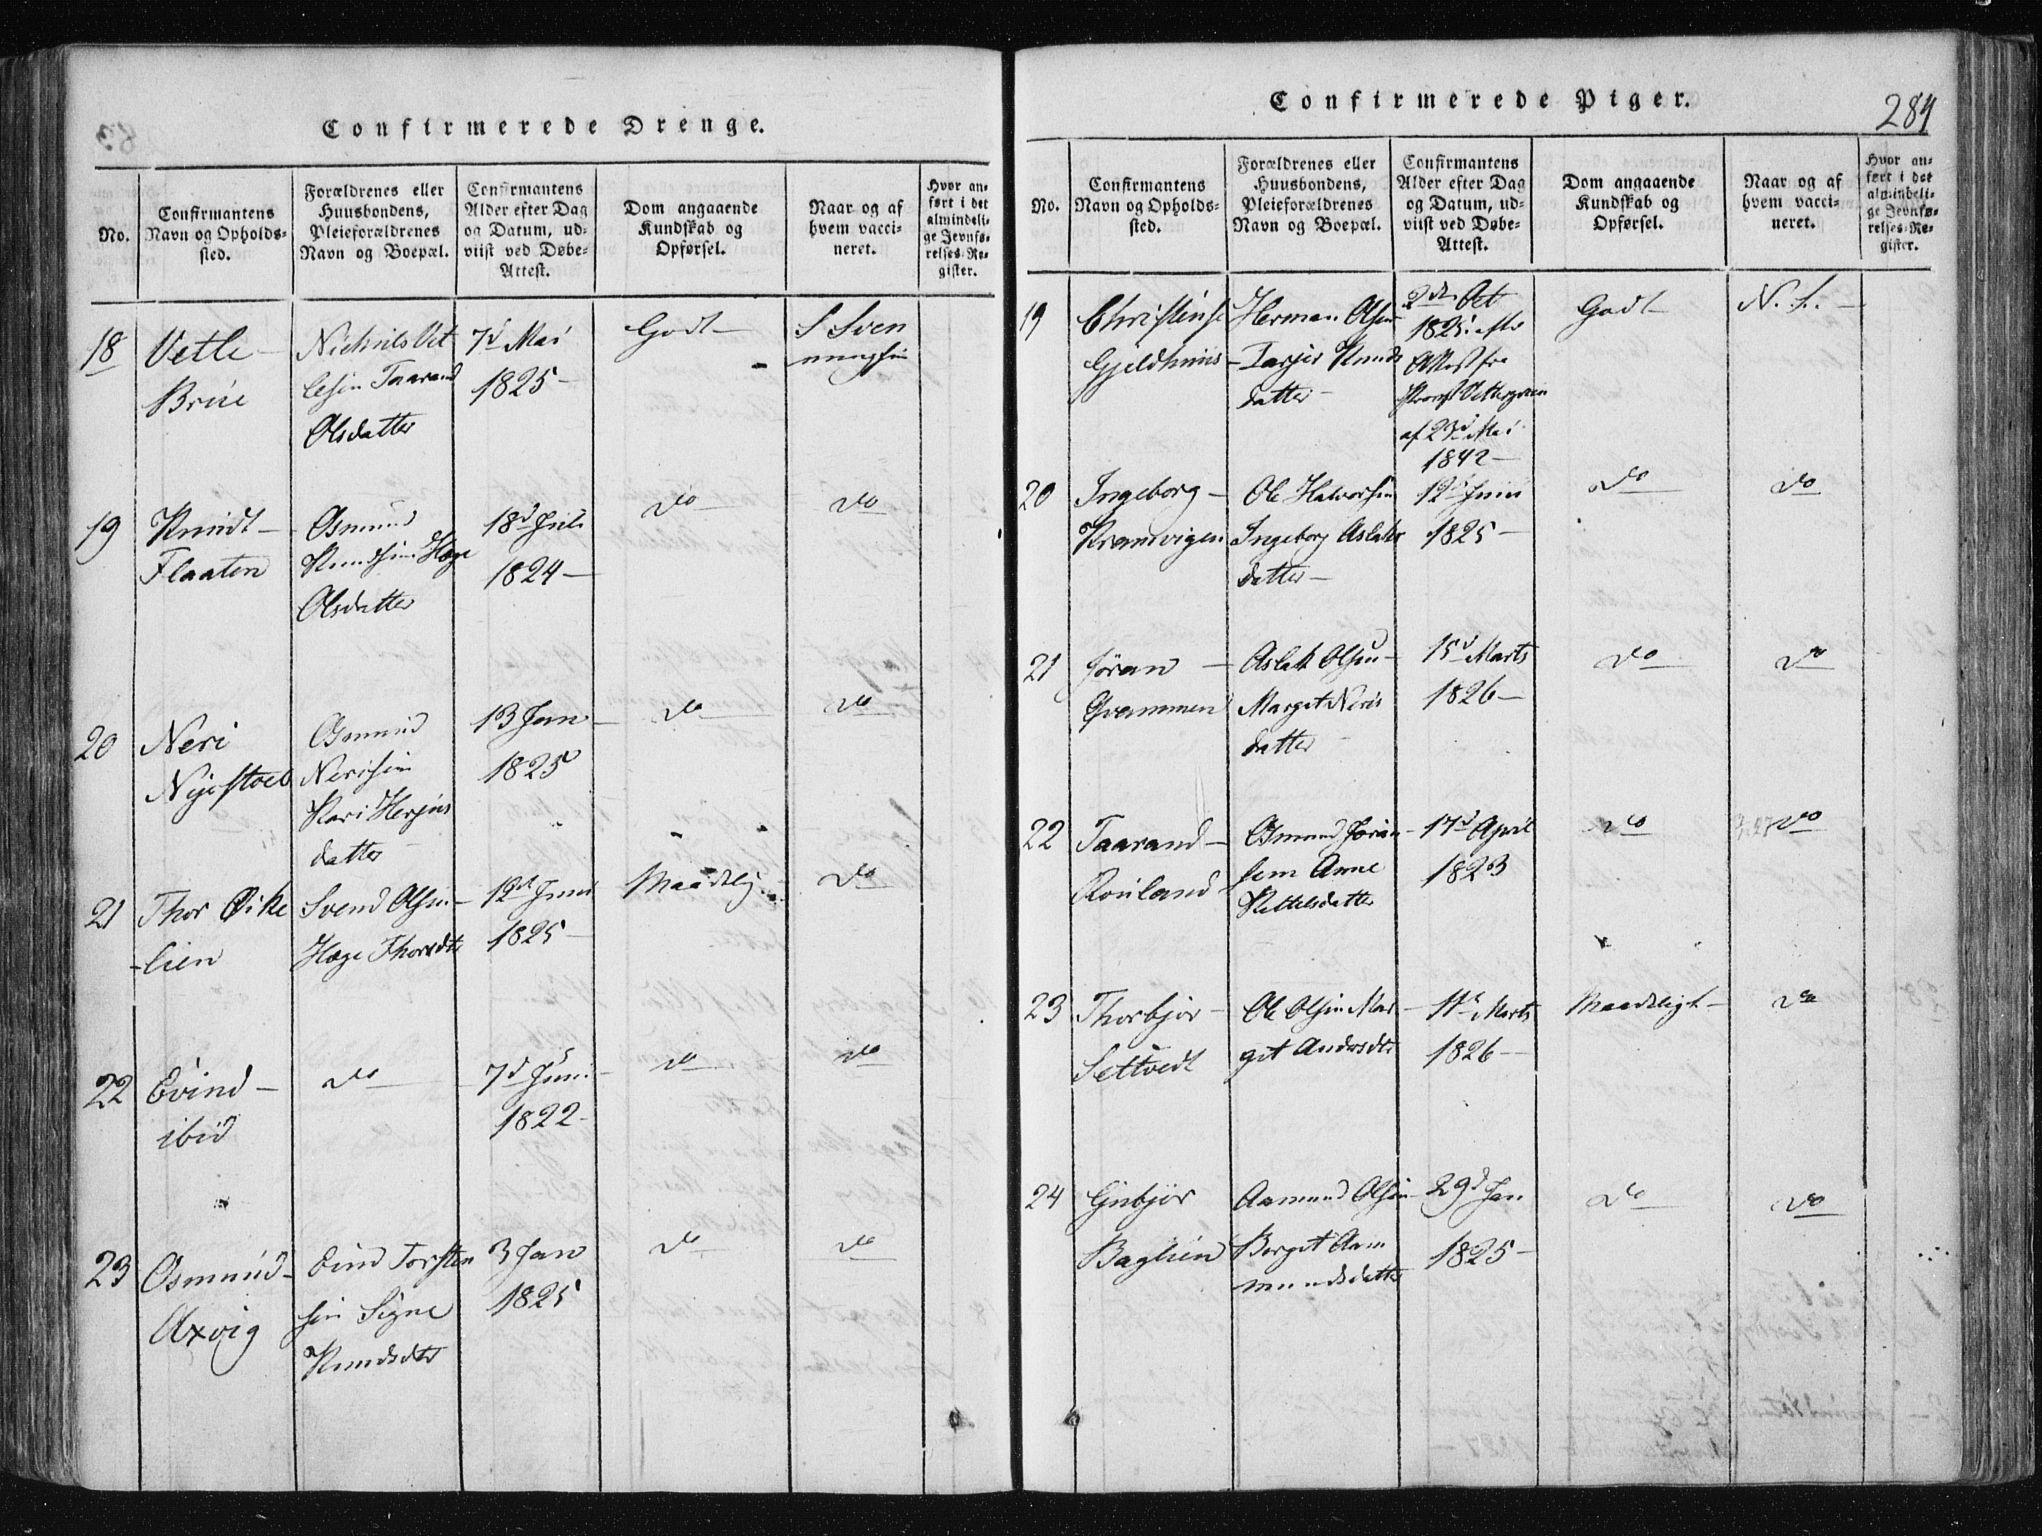 Confirmerede Drenge.
No.
Confirmantens Navn og Opholds-sted.
Forældrenes eller Huusbondens, Pleieforældrenes Navn og Boepæl.
Confirmantens Alder efter Dag og Datum, ud-viist ved Døbe-Attest.
Dom angaaende Kundskab og Opførsel.
Naar og af hvem vacci-neret.
Hvor an-ført i det almindeli-ge Jevnfø-relses-Re-gister.
18 Vetle
Olsdatter
Taarand
7d Mai
1825
Godt
S Sven
19 Knudt
Flaaten
Osmund
Olsdatter
18d Juli
1824
do
do
20 Neri
Osmund
Nerisen
Kari
datter
13 Jan
1825
do
do
21 Thor
lien
Svend Olsen
Hæge Thorsdtr
12d Juni
1825
Maadelig
do
22 Evind
ibid
do
7d Juni
1822
do
do
23 Osmund
Axvig
Torsten
sen Signe
Knudsdtr
3 Jan
1825
do
do
Confirmerede Piger.
284
No.
Confirmantens Navn og Opholds-sted.
Forældrenes eller Huusbondens, Pleieforældrenes Navn og Boepæl.
Confirmantens Alder efter Dag og Datum, ud-viist ved Døbe-Attest.
Dom angaaende Kundskab og Opførsel.
Naar og af hvem vacci-neret.
Hvor an-ført i det almindeli-ge Jevnfø-relses-Re-gister.
19 Christense
Gjeldhuus
Herman Olsen
Knuds
datter
2den Oct
1825
Attest fra
Provst
af
Mai
1842
Godt
20 Ingeborg
Kramvigen
Ole Halvorsen
Ingeborg Aslaks
datter
12d Juni
1825
do
do
21 Jøran
Qvammen
Aslak Olsen
Margit Neris
datter
15d Marts
1826
do
do
22 Taarand
Rouland
Osmund Jøran
sen Anne
Kettelsdatter
17d April
1823
do
do
23 Thorbjør
Settvedt
Ole Olsen Mar
git Andersdtr
Marts
1826
Maadeligt
do
24 Gubjør
Baglien
Aamund Olsen
Borget Aam
mundsdatter
29d Jan
1825
do
do